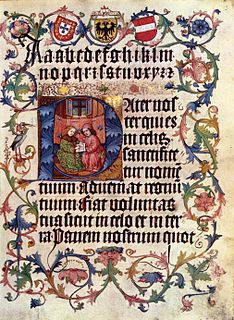 Aabcdefghiklm
nopqrſstuvxyz
Pater nos
ter qui es
in celis
sanctifice
tur nomē
tuum
tuum Fiat voluntas
tua sicut in celo et in ter
ra Panem nostrum quot